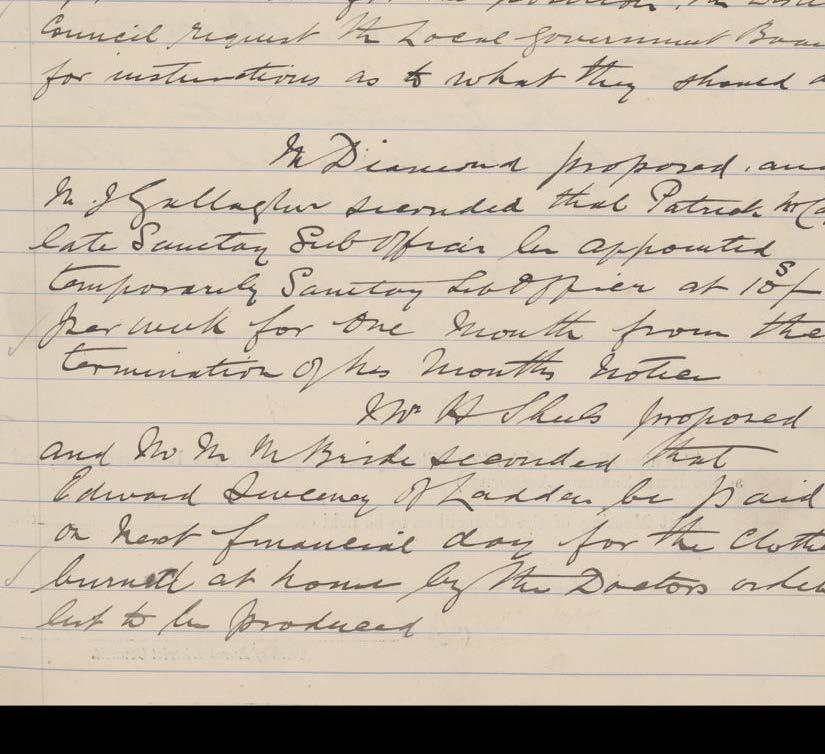 for the position, the
Council request the Local Government Boa
for instructions as to what they should
Mr Diamond proposed, and
Mr. J Gallagher seconded that Patrick Mc
late Sanitay Sub Officer be appointed
temporarily Sanitay Sub Officer at 10s/-
per week for One Month from the
termination of his Months Notice
Mr H Sheils proposed
and Mr M McBride seconded that
Edward Sweeney of be paid
on Next financial day for the Cloth
burned at home by the Doctors order
list to be produced